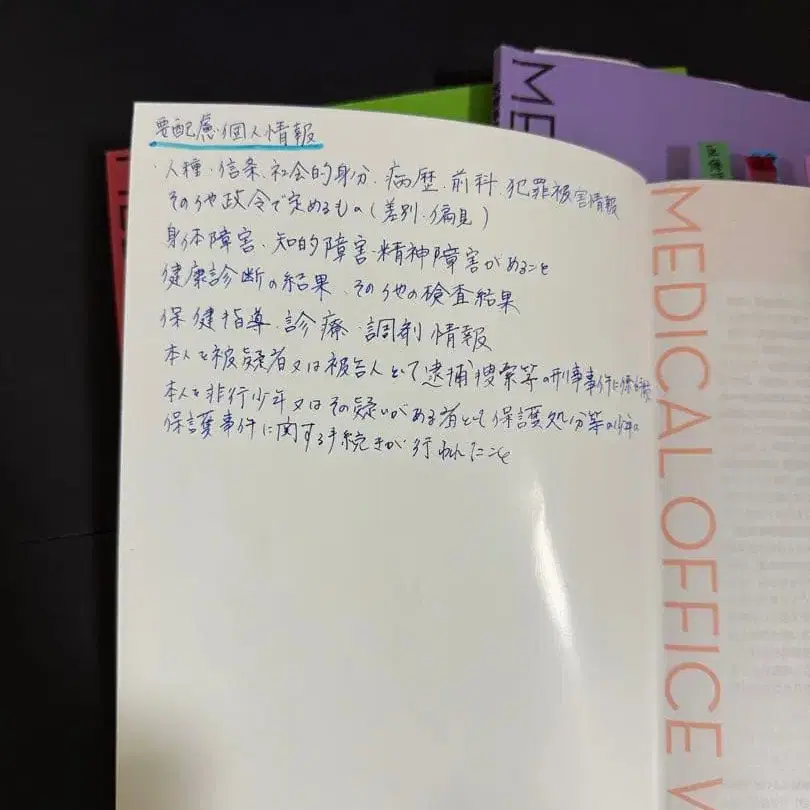 要配慮個人情報
・人種・信条・社会的身分・病歴・前科・犯罪被害情報
その他政令で定めるもの(差別・偏見)
身体障害・知的障害・精神障害があること
健康診断の結果、その他の検査結果
保健指導・診療・調剤情報
本人を被疑者又は被告人として逮捕捜索等の刑事事件に
本人を非行少年又はその疑いがある者として保護処分等の少年の
保護事件に関する手続きが行われたこと
ME
MEDICAL OFFICE W